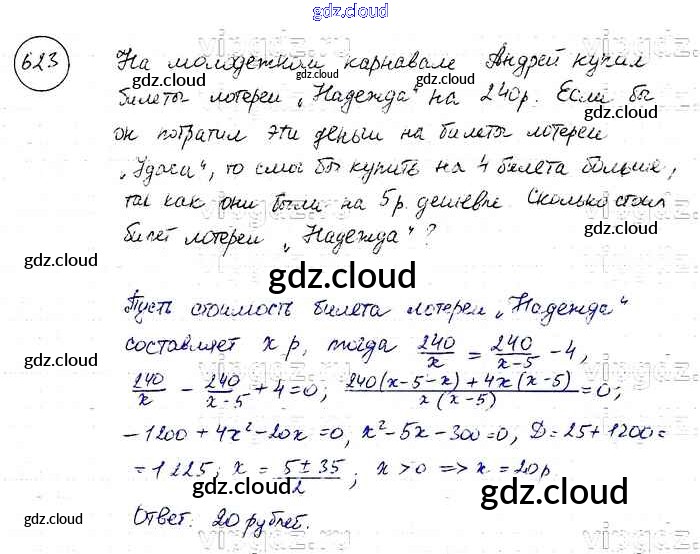 gdz.cloud
623
На молодежном карнавале Андрей купил
билеты лотереи „Надежда“ на 240р. Если бы
он потратил эти деньги на билеты лотереи
„Удача“, то смог бы купить на 4 билета больше,
так как они были на 5 р. дешевле. Сколько стоил
билет лотереи „Надежда“?
gdz.cloud
Пусть стоимость билета лотереи „Надежда“
составляет x р, тогда 240/x = 240/(x-5) - 4,
240/x - 240/(x-5) + 4 = 0; (240(x-5-x) + 4x(x-5))/(x(x-5)) = 0;
-1200 + 4x² - 20x = 0, x² - 5x - 300 = 0, D = 25 + 1200 =
= 1225; x = (5 ± 35)/2; x > 0 => x = 20р.
Ответ: 20 рублей.
gdz.cloud